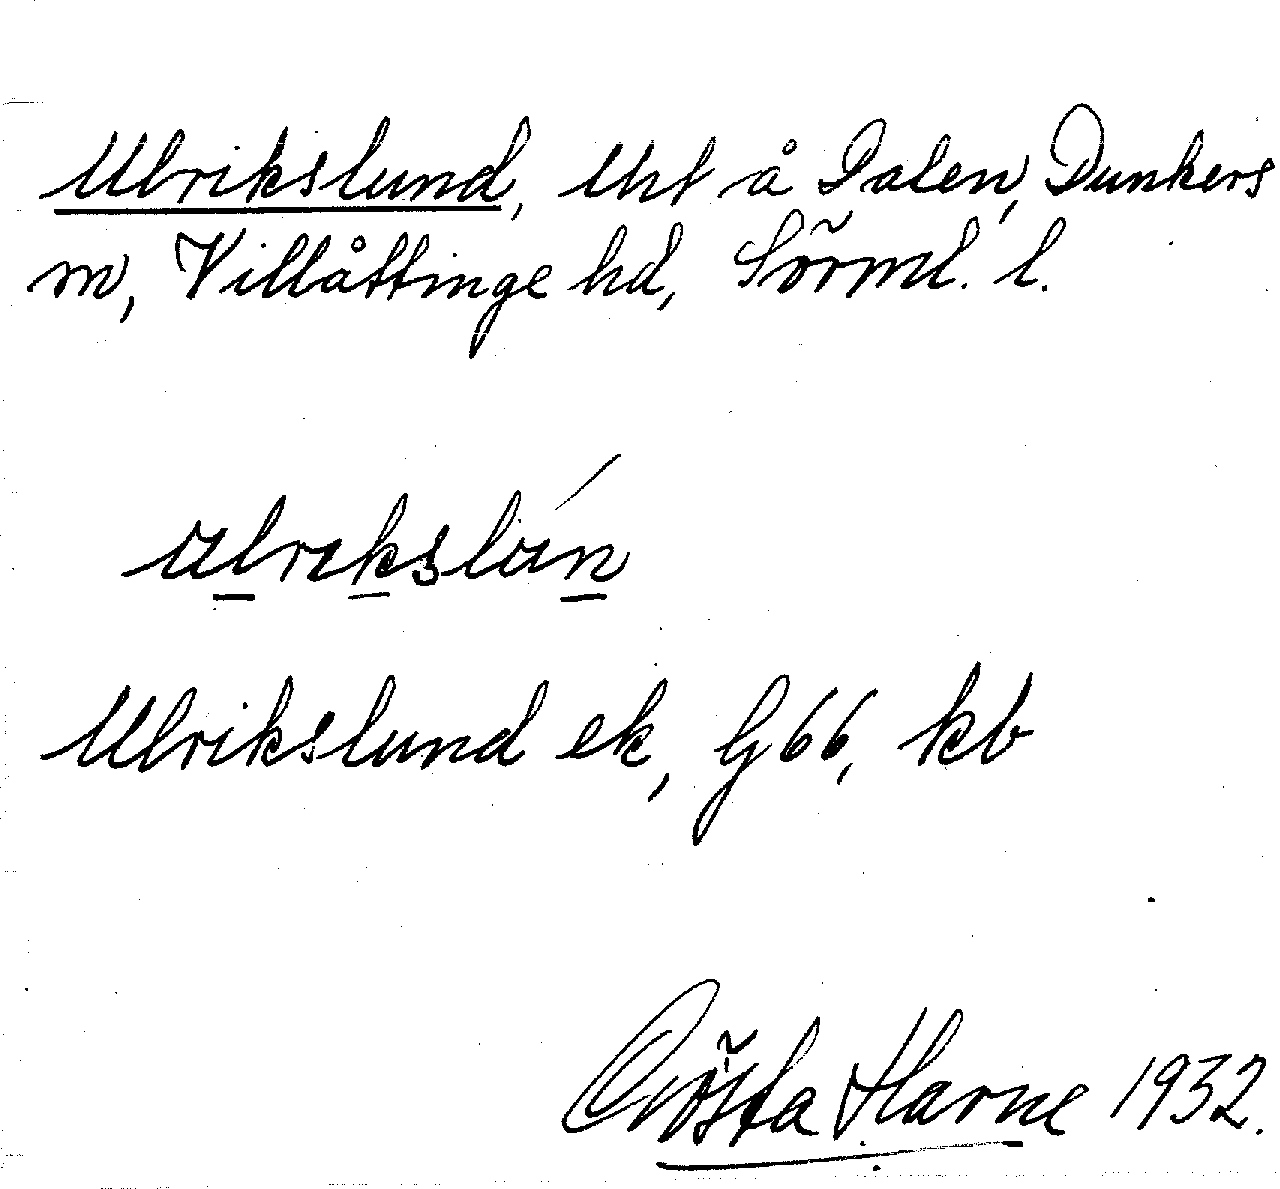 Ulrikslund, tht å Dalen, Dunkers
sn, Villåttinge hd, Sörml. l.
Ulrikslund ek, G66, kb
Gösta Harne 1932.